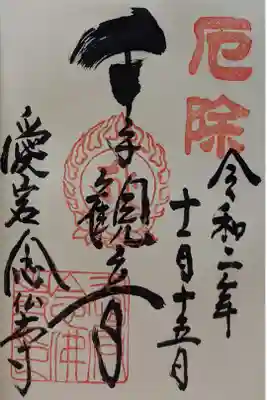 厄除
令和二年
十一月十五日
千手観音
愛宕念仏寺